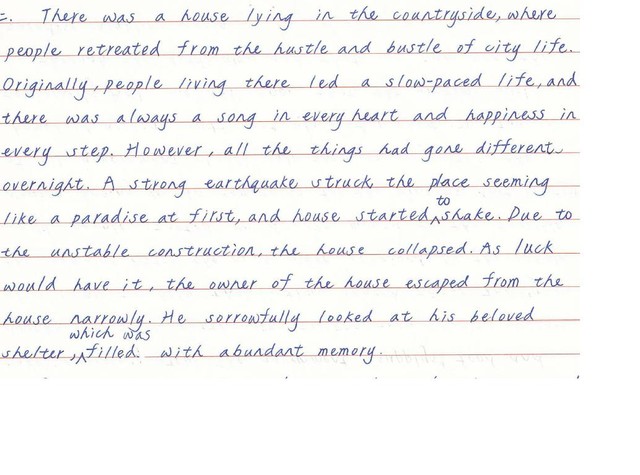 二. There was a house lying in the countryside, where
people retreated from the hustle and bustle of city life.
Originally, people living there led a slow-paced life, and
there was always a song in every heart and happiness in
every step. However, all the things had gone different
overnight. A strong earthquake struck the place seeming
like a paradise at first, and house started to shake. Due to
the unstable construction, the house collapsed. As luck
would have it, the owner of the house escaped from the
house narrowly. He sorrowfully looked at his beloved
shelter, which was filled. with abundant memory.